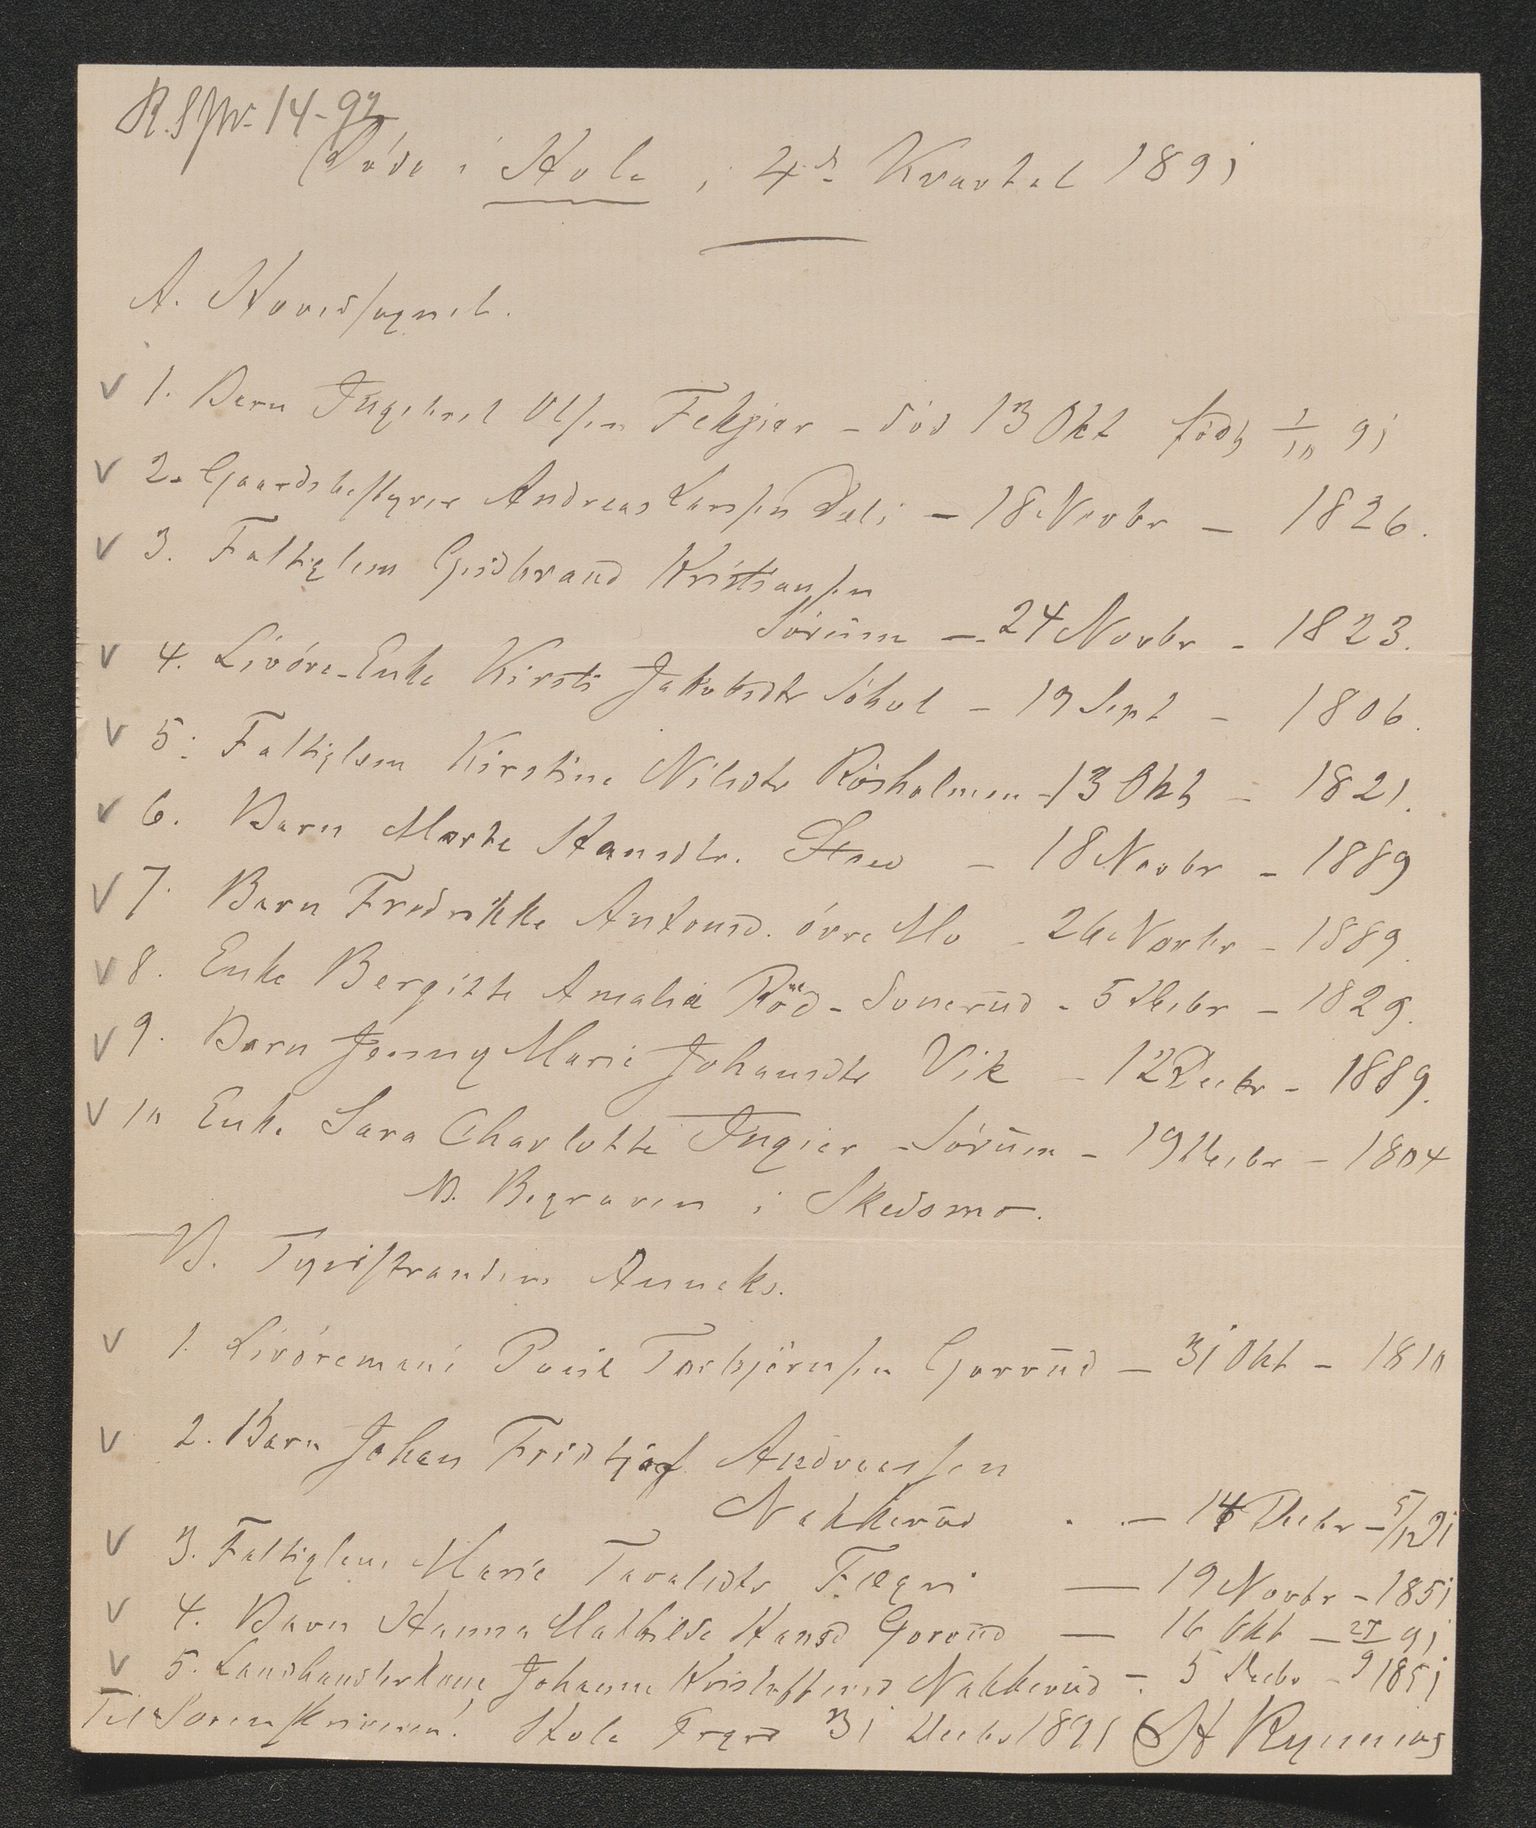 R.S.Jnr. 14-92
Døde i Hole i 4de Kvartal 1891
A. Hovedsognet.
V 1. Barn Ingebret Olsen Fekjær - død 13 Okt født 1/10 91
V 2. Gaardsbestyrer Andreas Larsen Dæli - 18 Novbr - 1826.
V 3. Fattiglem Gudbrand Kristiansen
Sørum - 24 Novbr - 1823.
V 4. Livøre-Enke Kirsti Jakobsdtr Søhol - 19 Sept - 1806.
V 5. Fattiglem Kirstine Nilsdtr Røsholmen - 13 Okt - 1821.
V 6. Barn Marte Hansdtr. - 18 Novbr - 1889
V 7. Barn Fredrikke Antonsd. øvre Mo - 26 Novbr - 1889.
V 8. Enke Bergitte Amalia Røed - Sonerud - 5 Decbr - 1829.
V 9. Barn Jenny Marie Johansdtr Vik - 12 Decbr - 1889.
V 10 Enke Sara Charlotte Ingier - Sørum - 19 Decbr - 1804
N. Begraven i Skedsmo.
B. Tyristrandens Anneks.
V 1. Livøremand Poul Torbjørnsen Gorrud - 31 Okt - 1810
V 2. Barn Johan Fridtjof Andreassen
Nakkerud - 14 Decbr - 5/12 91
V 3. Fattiglem Marie Tovalsdtr - 19 Novbr - 1851
V 4. Barn Hanna Mathilde Hansd Gorrud - 16 Okt - 27/9 91
V 5. Landhandlerkone Johanne Kristoffersd Nakkerud - 5 Decbr - 1851
Til Sorenskriveren! Hole Prgrd 31 Decbr 1891 H Rynning